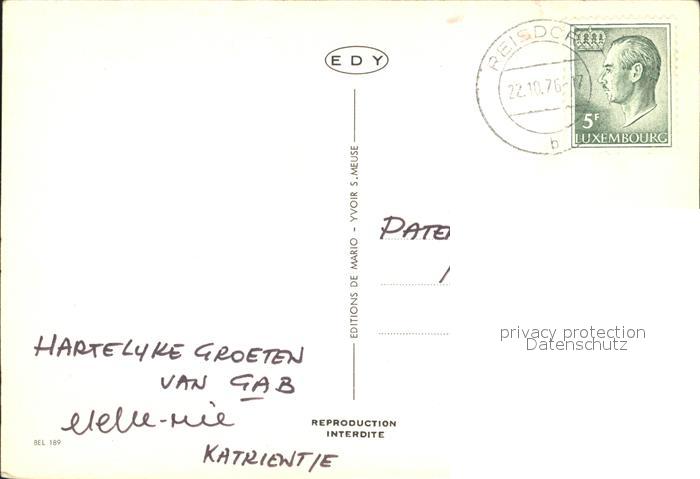 EDY
REISDOR
22.10.76-17
b
5F
LUXEMBOURG
EDITIONS DE MARIO - YVOIR S.MEUSE
PATE
privacy protection
Datenschutz
HARTELYKE GROETEN
VAN GAB
REPRODUCTION
INTERDITE
BEL 189
KATRIENTJE